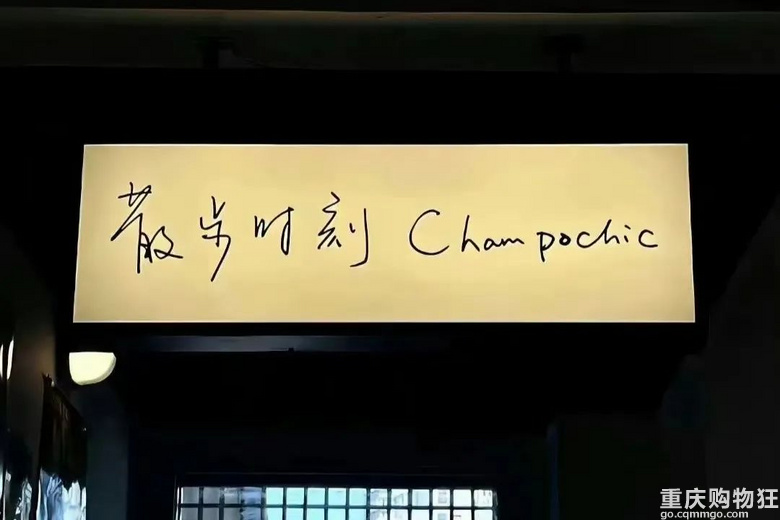 散步时刻 Champochic
重庆购物狂
go.cqmmgo.com